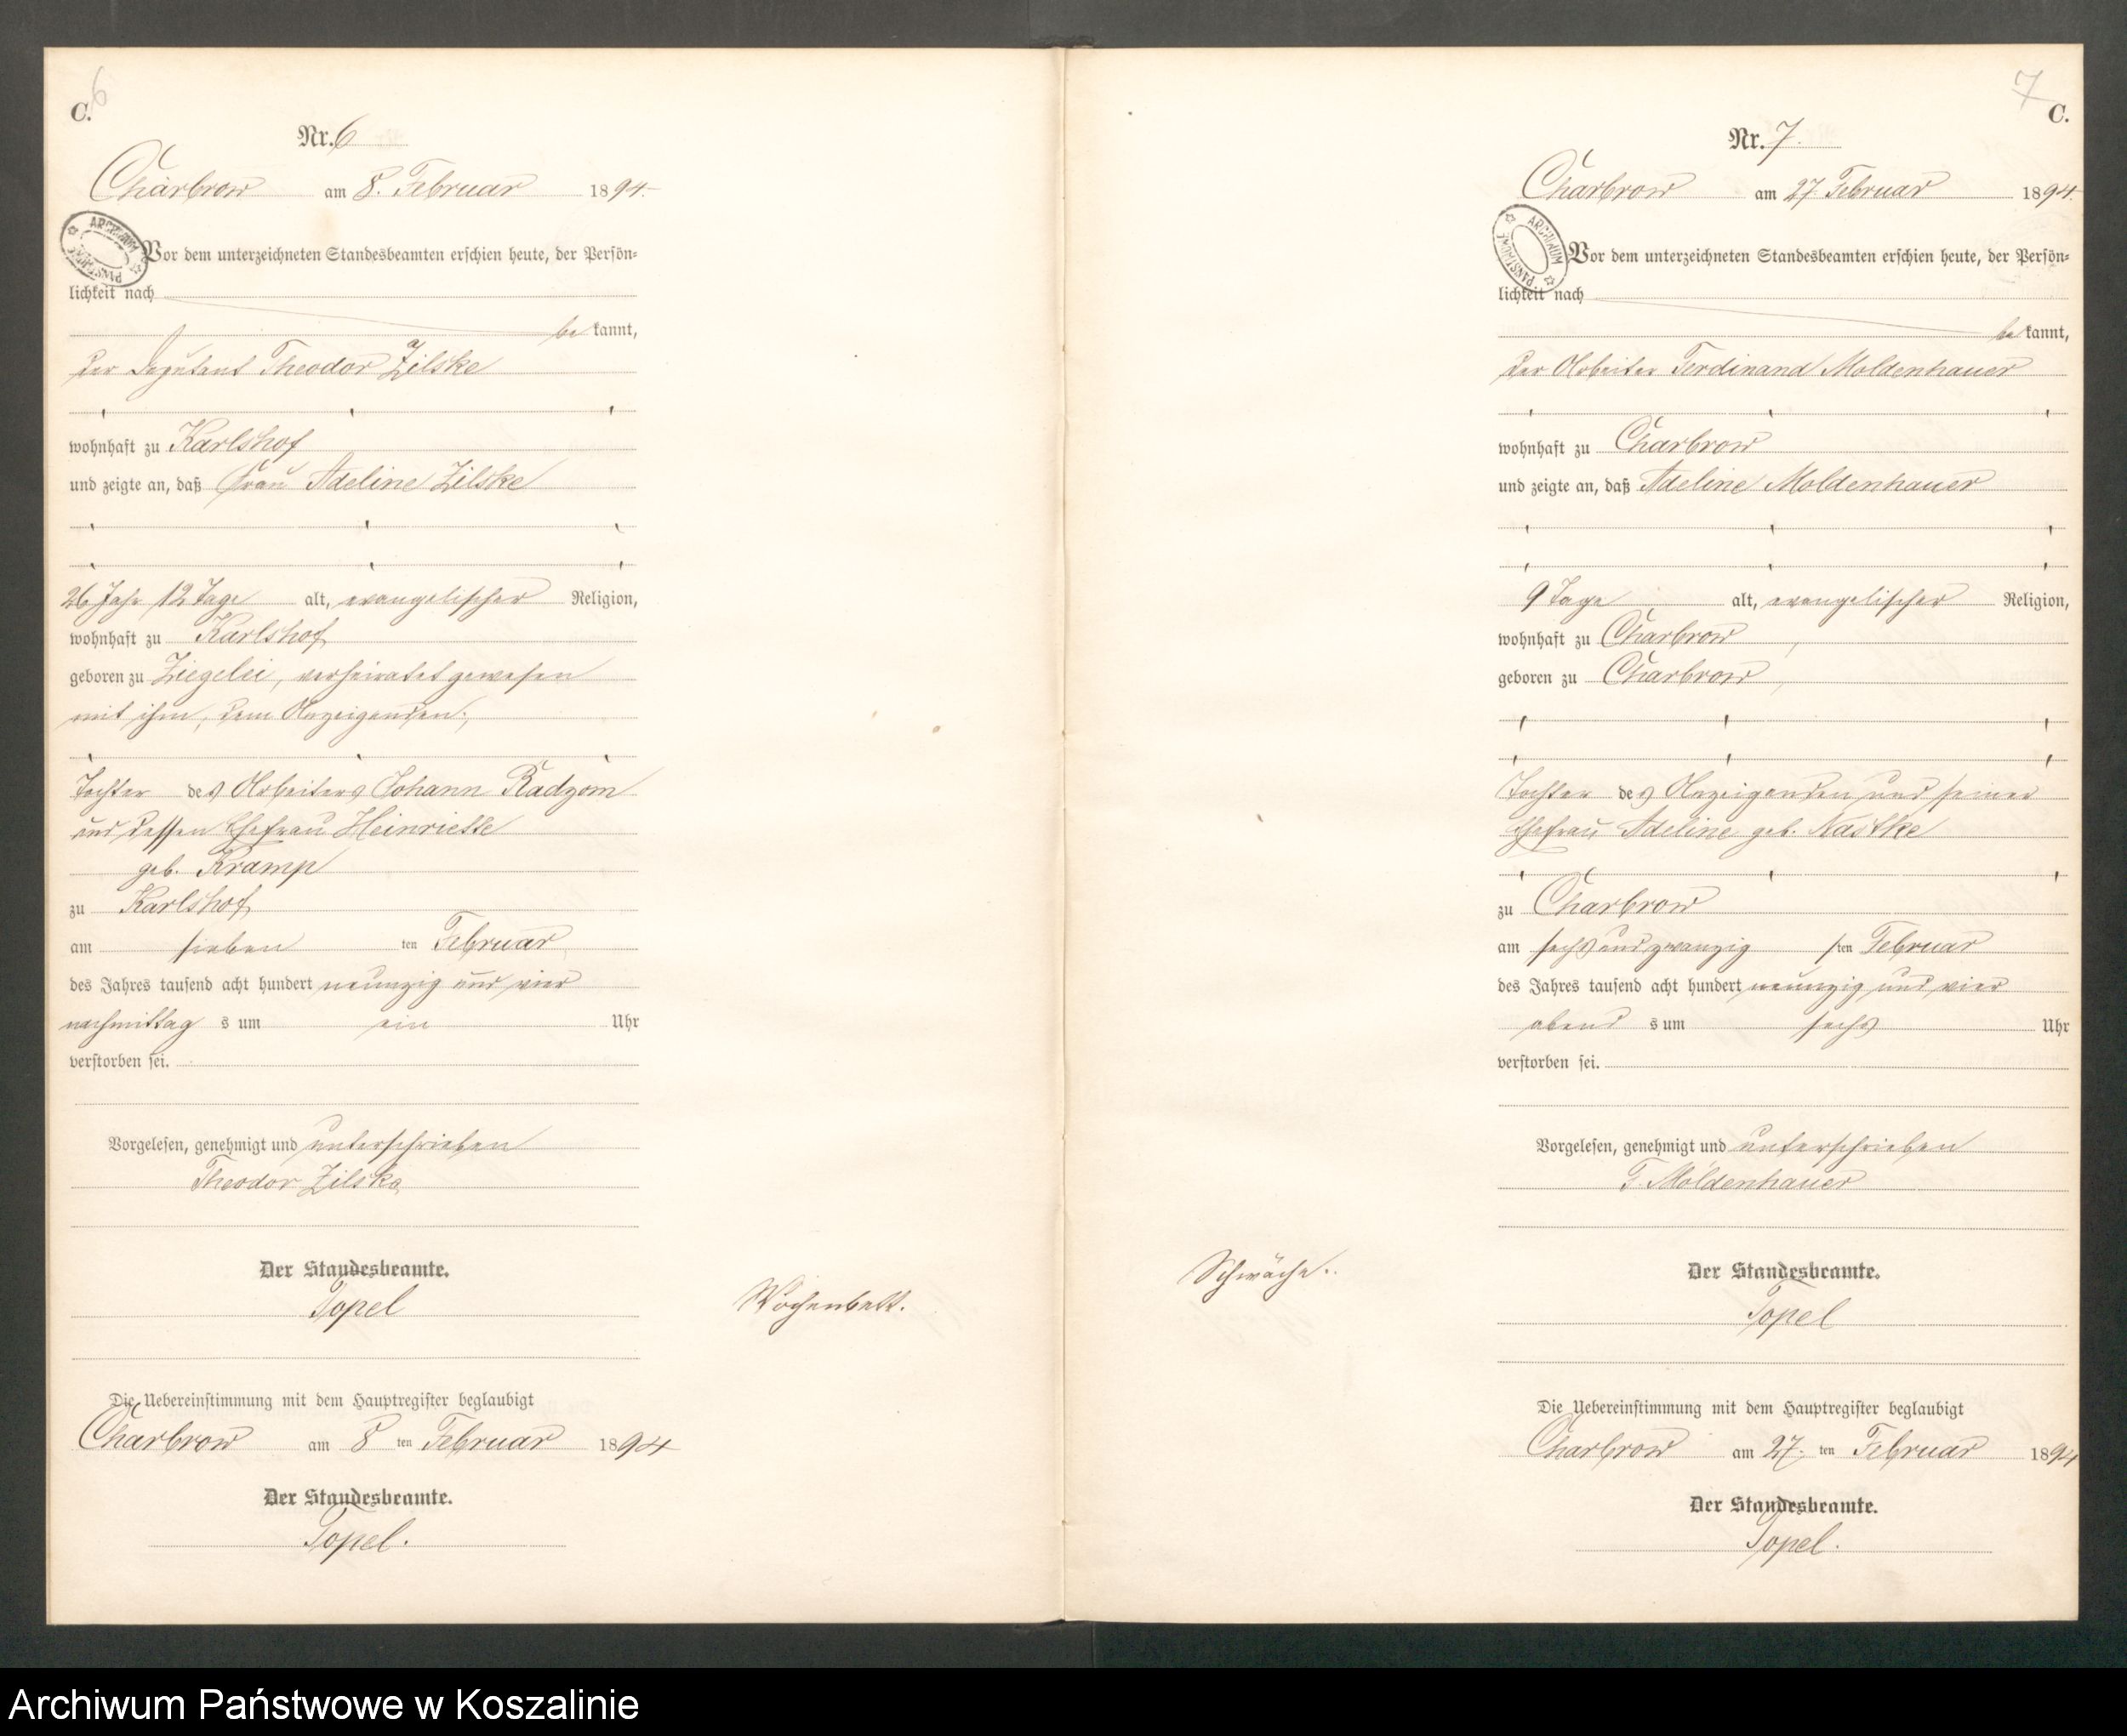 6
C.
Nr. 6
Charbrow am 8. Februar 1894.
ARCHIWUM PAŃSTWOWE
Vor dem unterzeichneten Standesbeamten erschien heute, der Persön-
lichkeit nach
be kannt,
der Deputant Theodor Zilske
wohnhaft zu Karlshof
und zeigte an, daß Frau Adeline Zilske
26 Jahr 12 Tage alt, evangelischer Religion,
wohnhaft zu Karlshof,
geboren zu Ziegelei, verheiratet gewesen
mit ihm, dem Anzeigenden,
Tochter des Arbeiters Johann Radzom
und dessen Ehefrau Heinriette
geb. Kramp
zu Karlshof,
am sieben ten Februar
des Jahres tausend acht hundert neunzig und vier
nachmittag s um ein Uhr
verstorben sei.
Vorgelesen, genehmigt und unterschrieben
Theodor Zilske
Der Standesbeamte.
Topel
Wochenbett.
Die Uebereinstimmung mit dem Hauptregister beglaubigt
Charbrow am 8 ten Februar 1894
Der Standesbeamte.
Topel.
7
C.
Nr. 7.
Charbrow am 27. Februar 1894.
ARCHIWUM PAŃSTWOWE
Vor dem unterzeichneten Standesbeamten erschien heute, der Persön-
lichkeit nach
be kannt,
der Arbeiter Ferdinand Moldenhauer
wohnhaft zu Charbrow
und zeigte an, daß Adeline Moldenhauer
9 Tage alt, evangelischer Religion,
wohnhaft zu Charbrow,
geboren zu Charbrow,
Tochter des Anzeigenden und seiner
Ehefrau Adeline geb. Nastke
zu Charbrow
am sechs und zwanzig sten Februar
des Jahres tausend acht hundert neunzig und vier
abend s um sechs Uhr
verstorben sei.
Vorgelesen, genehmigt und unterschrieben
F. Moldenhauer
Schwäche.
Der Standesbeamte.
Topel
Die Uebereinstimmung mit dem Hauptregister beglaubigt
Charbrow am 27. ten Februar 1894
Der Standesbeamte.
Topel.
Archiwum Państwowe w Koszalinie